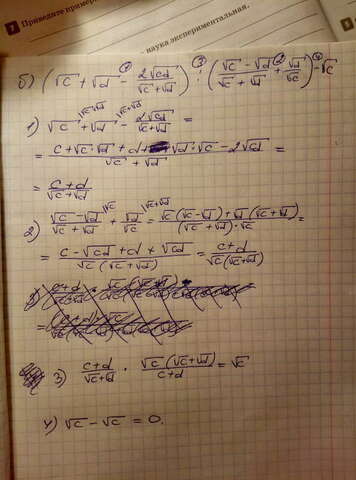 7 Приведите пример
наука экспериментальная.
б) (√c + √d − 2√cd / (√c + √d)) : ((√c − √d) / (√c + √d) + √d / √c) − √c
1) √c + √d − 2√cd / (√c + √d) =
= (c + √c·√d + d + √d·√c − 2√cd) / (√c + √d) =
= (c + d) / (√c + √d)
2) (√c − √d) / (√c + √d) + √d / √c = (√c(√c − √d) + √d(√c + √d)) / ((√c + √d)·√c) =
= (c − √cd + d + √cd) / (√c(√c + √d)) = (c + d) / (√c(√c + √d))
3) (c + d) / (√c + √d) · √c(√c + √d) / (c + d) = √c
4) √c − √c = 0.